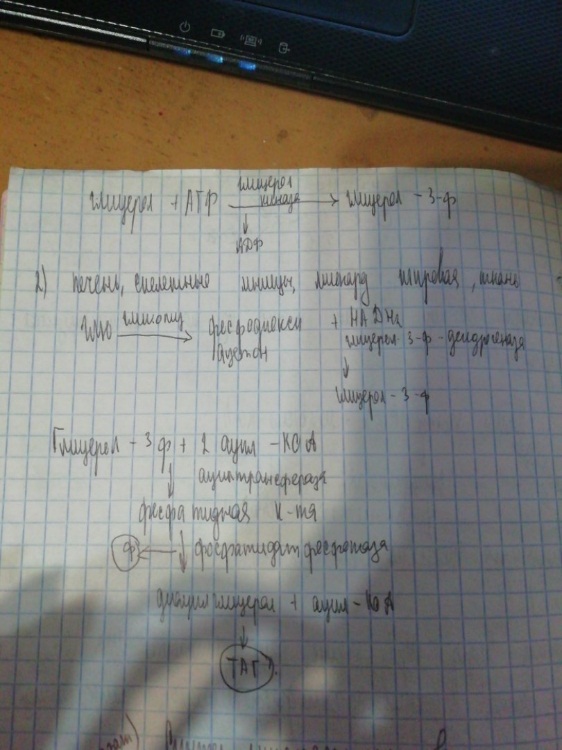 глицерол + АТФ глицерол киназа → глицерол - 3-ф
↓
АДФ
2) печень, скелетные мышцы, миокард жировая, ткань
гликолиз → фосфодиокси ацетон + НАДН₂
глицерол-3-ф-дегидрогеназа
↓
глицерол-3-ф
Глицерол-3ф + 2 ацил-КОА
↓ ацилтрансфераза
фосфатидная к-та
ф ← ↓ фосфатидат фосфотаза
диацилглицерол + ацил-КоА
↓
ТАГ